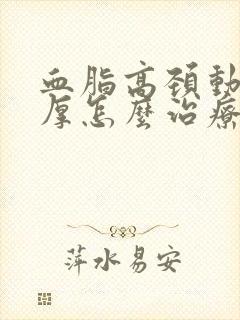 血脂高颈動
厚怎麼治療
萍水易安